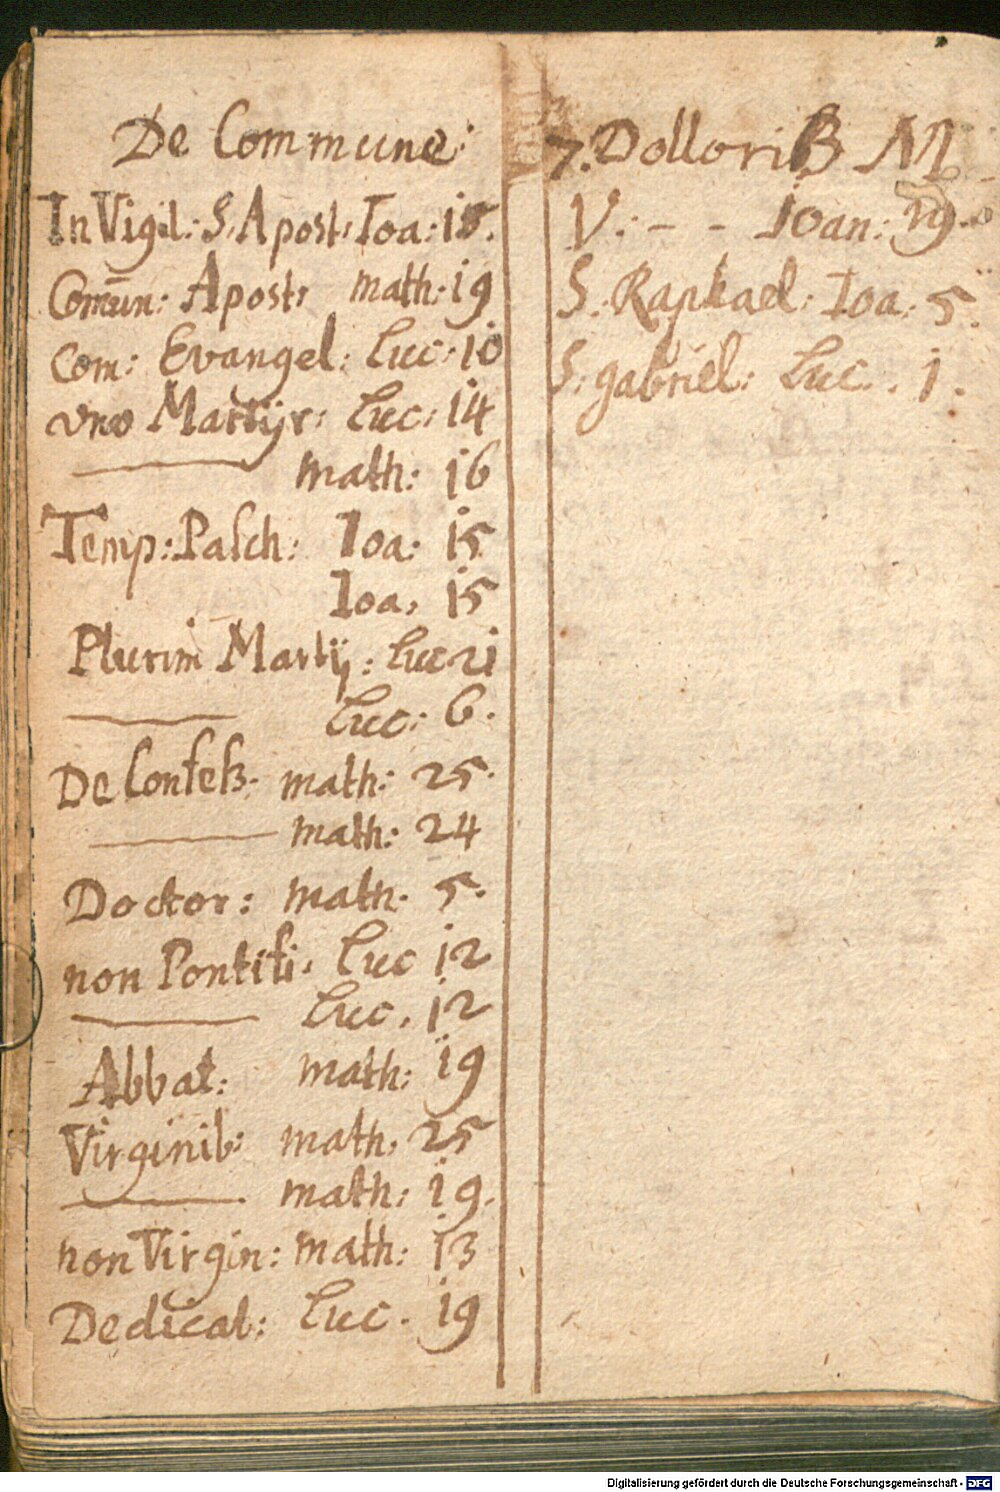 De Commune:
In Vigil: S. Apost: Ioa: 15.
Com̄un: Apost: math: 19
Com: Evangel: Luc: 10
vno Martÿr: Luc: 14
math: 16
Temp: Pasch: Ioa: 15
Ioa, 15
Plurim Martÿ: Luc 21
Luc: 6.
De Confeß. math: 25.
math: 24
Doctor: math. 5.
non Pontifi. Luc 12
Luc. 12
Abbat: math: 19
Virginib: math. 25
math: 19.
non Virgin: math: 13
Dedicat: Luc. 19
7. Dollori B M
V: - - Ioan: 19.
S. Raphael: Ioa: 5.
S. gabriel: Luc. 1.
Digitalisierung gefördert durch die Deutsche Forschungsgemeinschaft - DFG